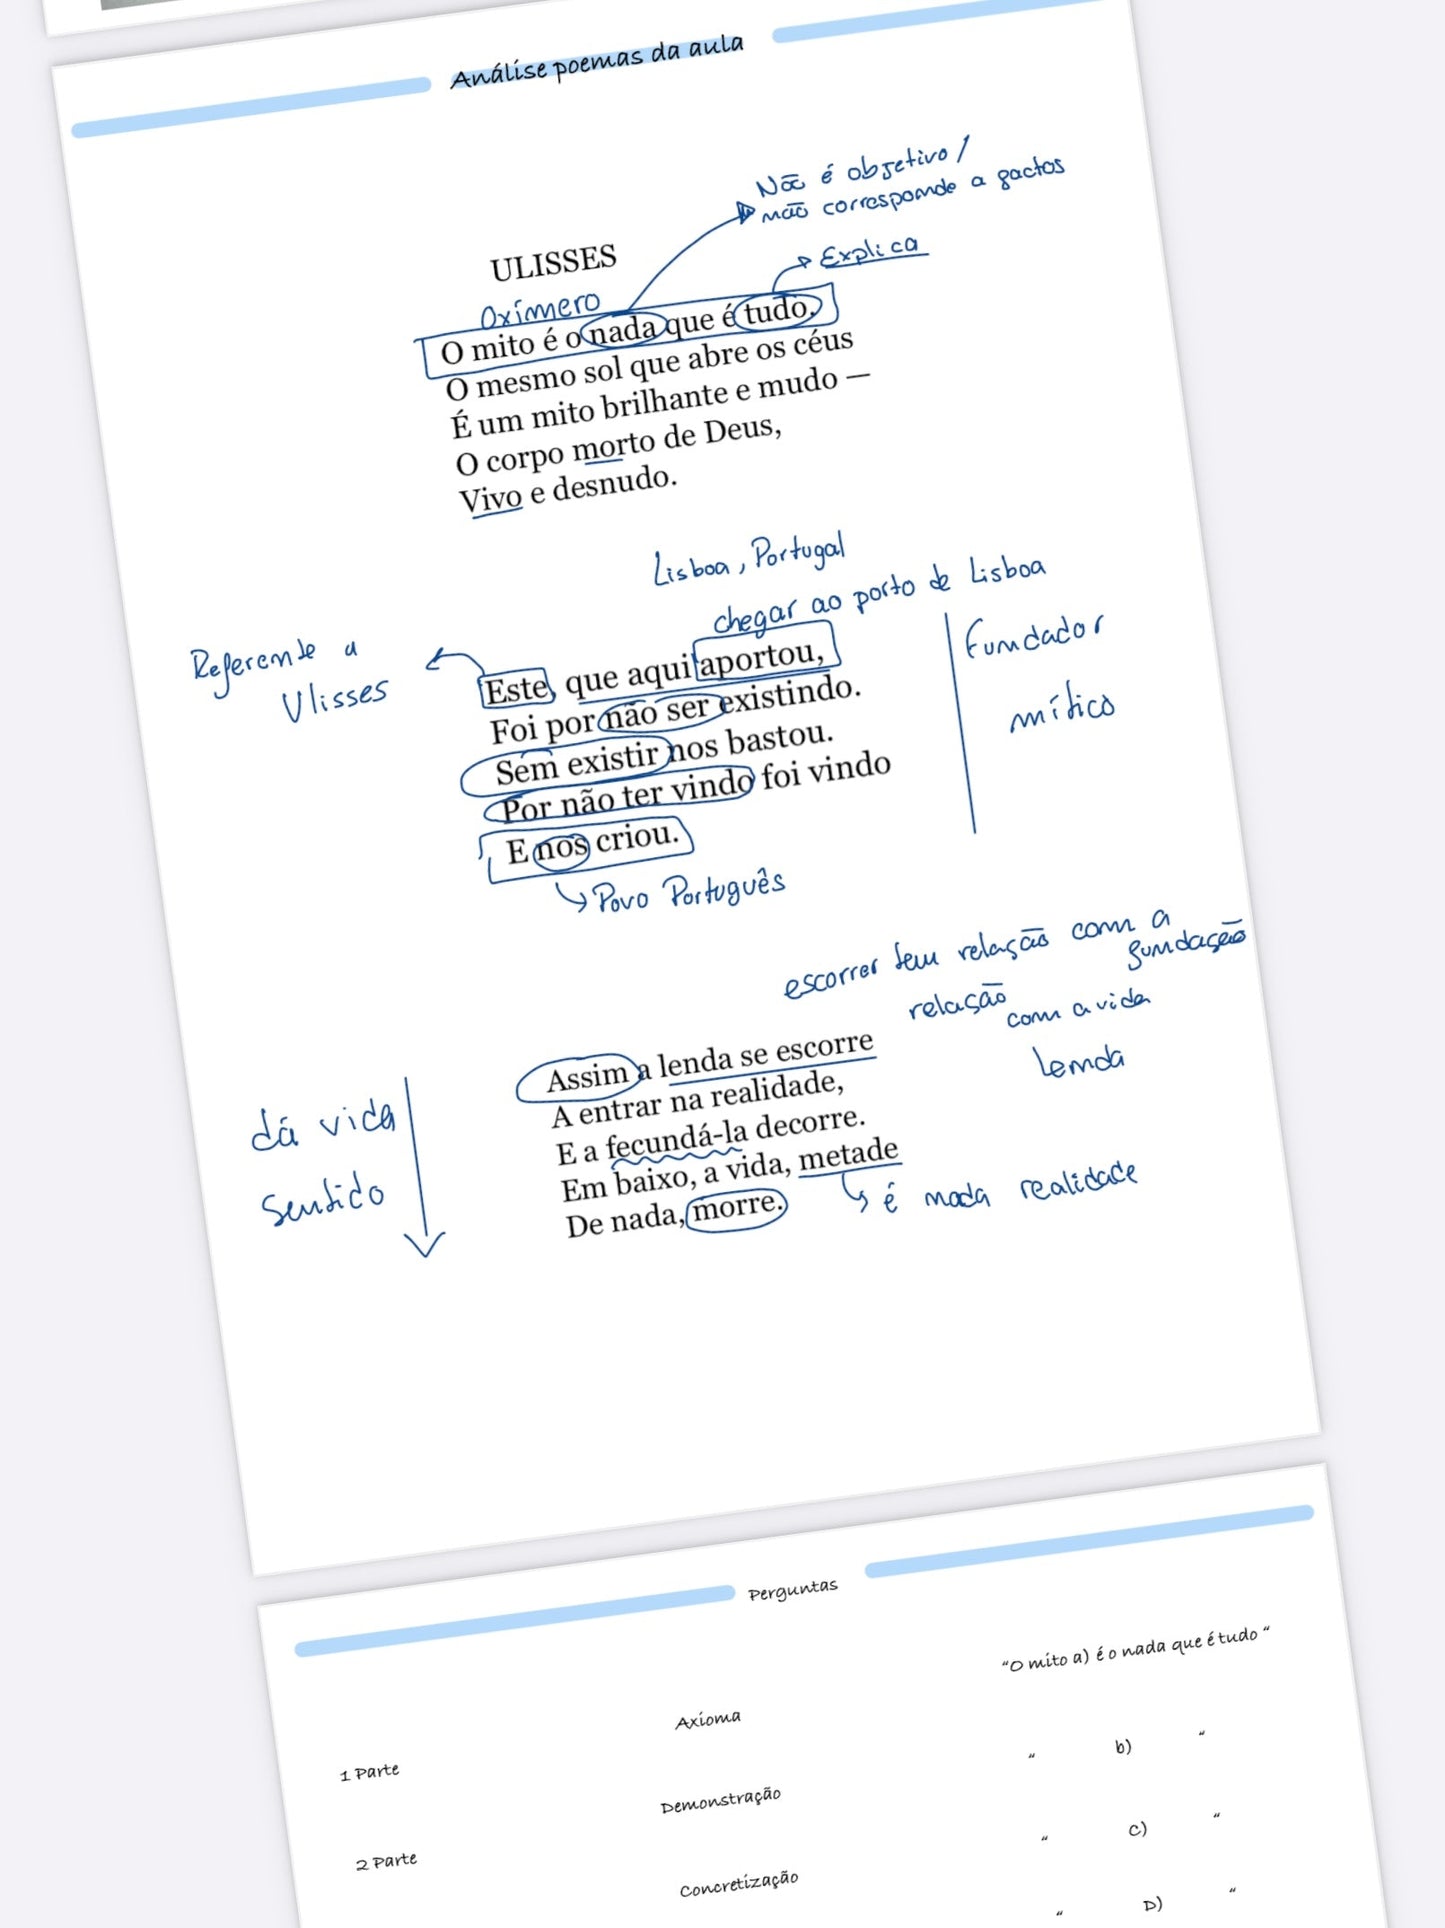 Análise poemas da aula
Não é objetivo /
não corresponde a factos
ULISSES
Explica
Oxímero
O mito é o nada que é tudo.
O mesmo sol que abre os céus
É um mito brilhante e mudo —
O corpo morto de Deus,
Vivo e desnudo.
Lisboa, Portugal
chegar ao porto de Lisboa
Referente a
Ulisses
Fundador
mítico
Este, que aqui aportou,
Foi por não ser existindo.
Sem existir nos bastou.
Por não ter vindo foi vindo
E nos criou.
Povo Português
escorrer tem relação com a
fundação
relação
com a vida
lenda
Assim a lenda se escorre
A entrar na realidade,
E a fecundá-la decorre.
Em baixo, a vida, metade
De nada, morre.
dá vida
sentido
é nada realidade
Perguntas
"O mito a) é o nada que é tudo "
Axioma
1 Parte
" b) "
Demonstração
2 Parte
" C) "
Concretização
" D) "